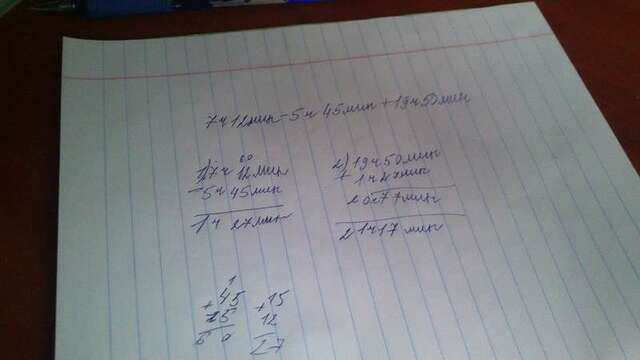 7ч 12мин - 5ч 45мин + 19ч 50мин
60
1) 7ч 12мин
- 5ч 45мин
1ч 27мин
2) 19ч 50мин
+ 1ч 27мин
20ч 77мин
21ч 17мин
1
+ 45
15
60
+ 15
12
27